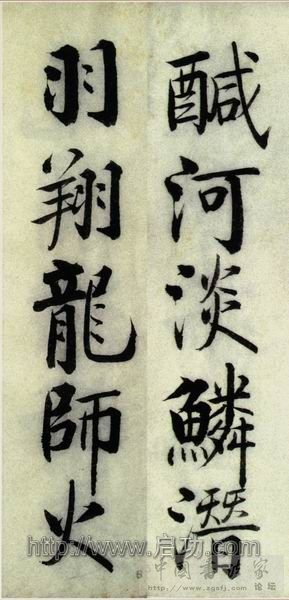 醎河淡鱗潛
羽翔龍師火
http://www.启功.com
中國書法家
論坛
www.zgsfj.com